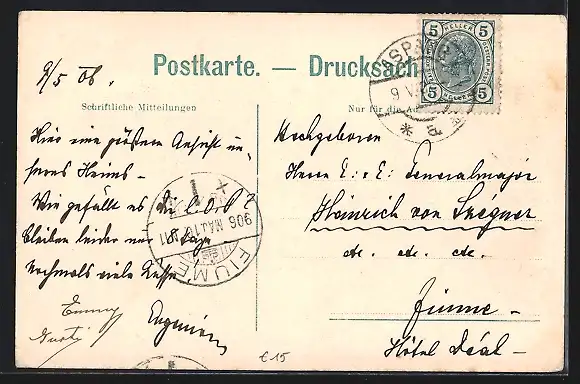 9/5 06.
Postkarte. — Drucksache
Schriftliche Mitteilungen
Nur für die
Hier eine größere Ansicht un-
seres Heims –
Wie gefällt es
bleiben leider nur 8 Tage
Nochmals viele Küsse
Emmy
Eugenie
Hochgeboren
Herrn K: u: K: Generalmajor
Heinrich von
etc. etc. etc.
Fiume –
Hôtel Déak –
5 HELLER 5
5 HELLER 5
ASPA
9 V
* a
FIUME
906 MÁJ. 10
€ 15